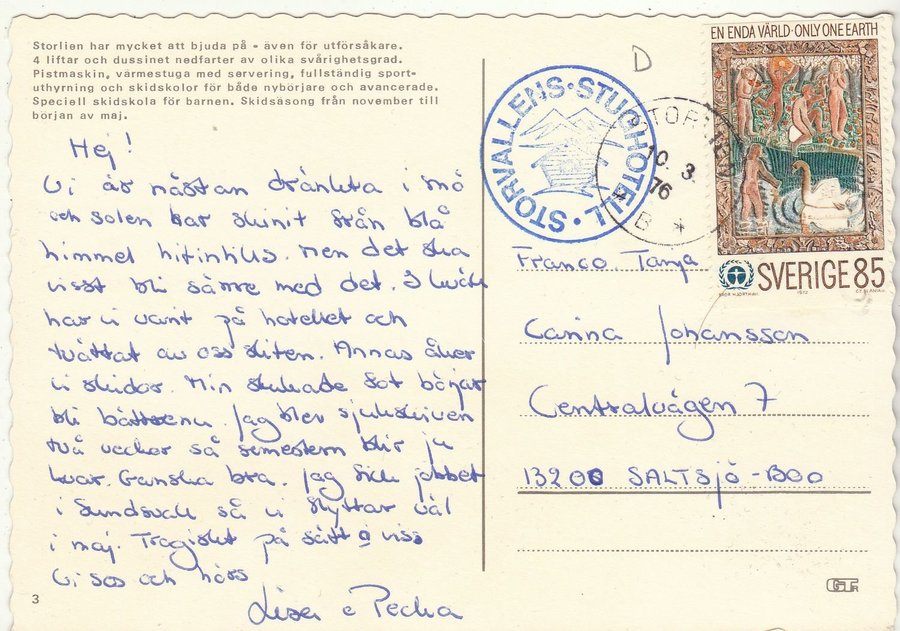 Storlien har mycket att bjuda på - även för utförsåkare.
4 liftar och dussinet nedfarter av olika svårighetsgrad.
Pistmaskin, värmestuga med servering, fullständig sport-
uthyrning och skidskolor för både nybörjare och avancerade.
Speciell skidskola för barnen. Skidsäsong från november till
början av maj.
Hej!
Vi är nästan dränkta i snö
och solen har skinit från blå
himmel hitintills. Men det ska
visst bli sämre med det. I kväll
har vi varit på hotellet och
tvättat av oss skiten. Annars åker
vi skidor. Min skukade fot börjar
bli bättre nu. Jag blev sjukskriven
två veckor så semestern blir ju
kvar. Ganska bra. Jag fick jobbet
i Sundsvall så vi flyttar väl
i maj. Tragiskt på sätt o viss
Vi ses och hörs
Lisa o Pecka
3
D
STORVALLENS·STUGHOTELL·
STORLIEN
10.3.
76
* B *
EN ENDA VÄRLD·ONLY ONE EARTH
SVERIGE 85
1972
Franco Tanja
Carina Johansson
Centralvägen 7
13200 SALTSJÖ-BOO
GTR